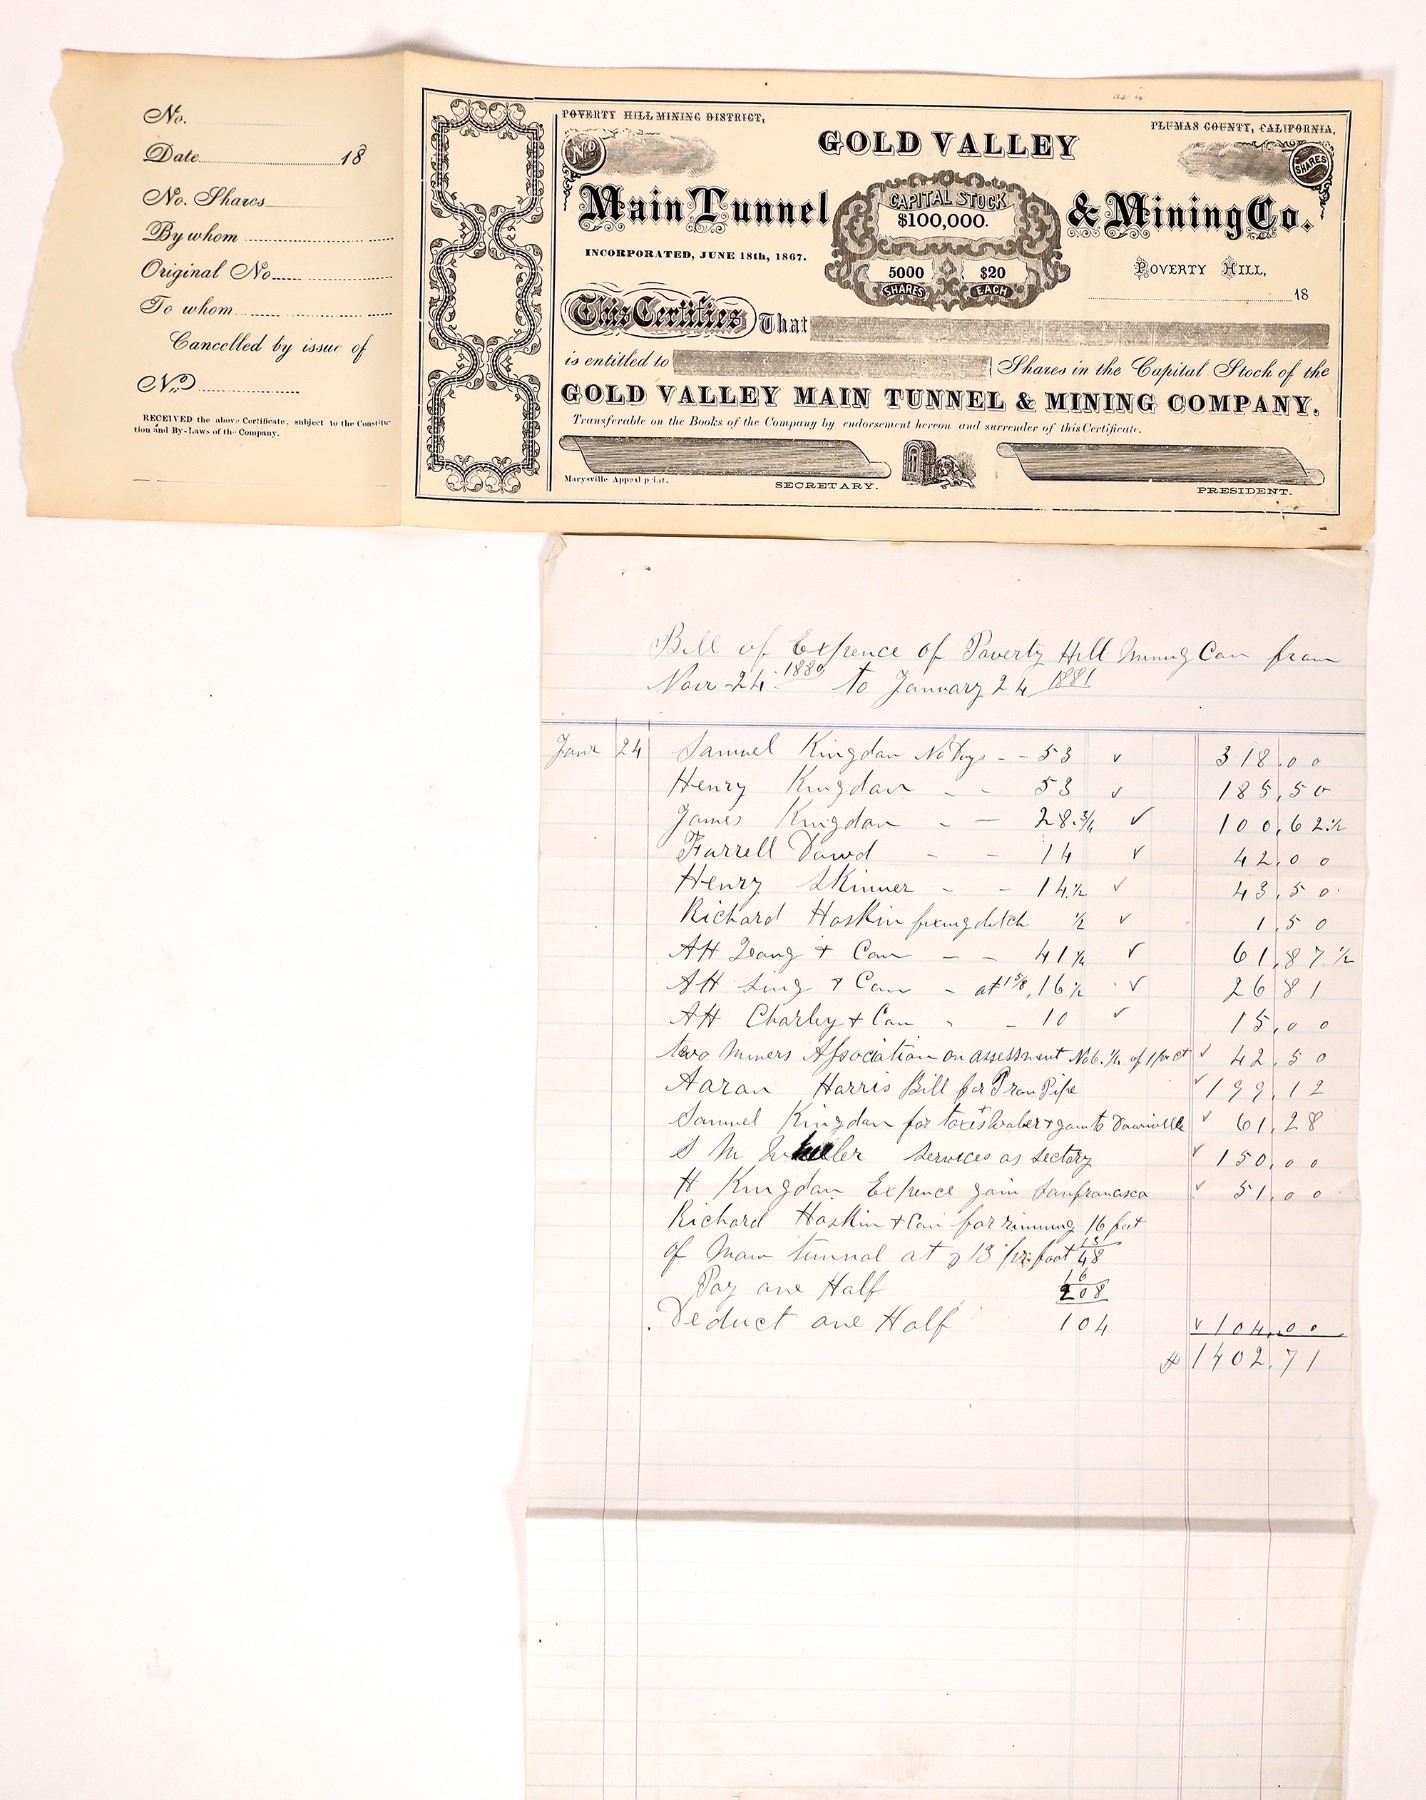 No.
Date 18
No. Shares
By whom
Original No.
To whom
Cancelled by issue of
No.
RECEIVED the above Certificate, subject to the Constitu-
tion and By-Laws of the Company.
as is
POVERTY HILL MINING DISTRICT,
PLUMAS COUNTY, CALIFORNIA,
GOLD VALLEY
No
SHARES
Main Tunnel & Mining Co.
CAPITAL STOCK
$100,000.
INCORPORATED, JUNE 18th, 1867.
5000 SHARES
$20 EACH
POVERTY HILL,
18
This Certifies That
is entitled to Shares in the Capital Stock of the
GOLD VALLEY MAIN TUNNEL & MINING COMPANY,
Transferable on the Books of the Company by endorsement hereon and surrender of this Certificate.
Marysville Appeal print.
SECRETARY.
PRESIDENT.
Bill of Expence of Poverty Hill Mining Com from
Novr 24 1880 to January 24 1881
Janr 24 Samuel Kingdon No Days - - 53 ✓ 318.00
Henry Kingdon - - 53 ✓ 185,50
James Kingdon - - 28.3/4 ✓ 100,62 1/2
Farrell Dowd - - 14 ✓ 42,00
Henry Skinner - - 14 1/2 ✓ 43,50
Richard Hoskin fixing ditch 1/2 ✓ 1,50
AH & Com - - 41 1/4 ✓ 61,87 1/2
AH Sing & Com - at 1 5/8, 16 1/2 ✓ 26 81
AH Charley & Com - - 10 ✓ 15,00
two Miners Association on assessment No 6. 1/4 of 1 per ct ✓ 42,50
Aaron Harris Bill for Iron Pipe ✓ 199,12
Samuel Kingdon for taxes & to ✓ 61,28
S M services as sectary ✓ 150,00
H Kingdon Expence goin Sanfrancisco ✓ 51,00
Richard Hoskin & Com for running 16 feet
of Main tunnal at $13 per foot 13
48
Pay one Half 16
208
Deduct one Half 104 ✓ 104,00
$1402,71